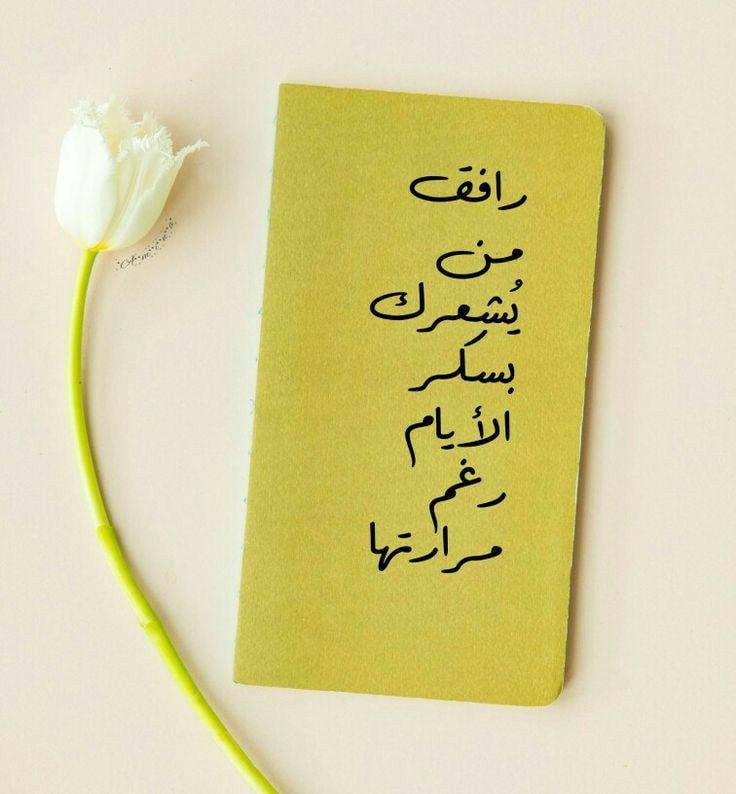 رافق
من
يُشعرك
بسكر
الأيام
رغم
مرارتها